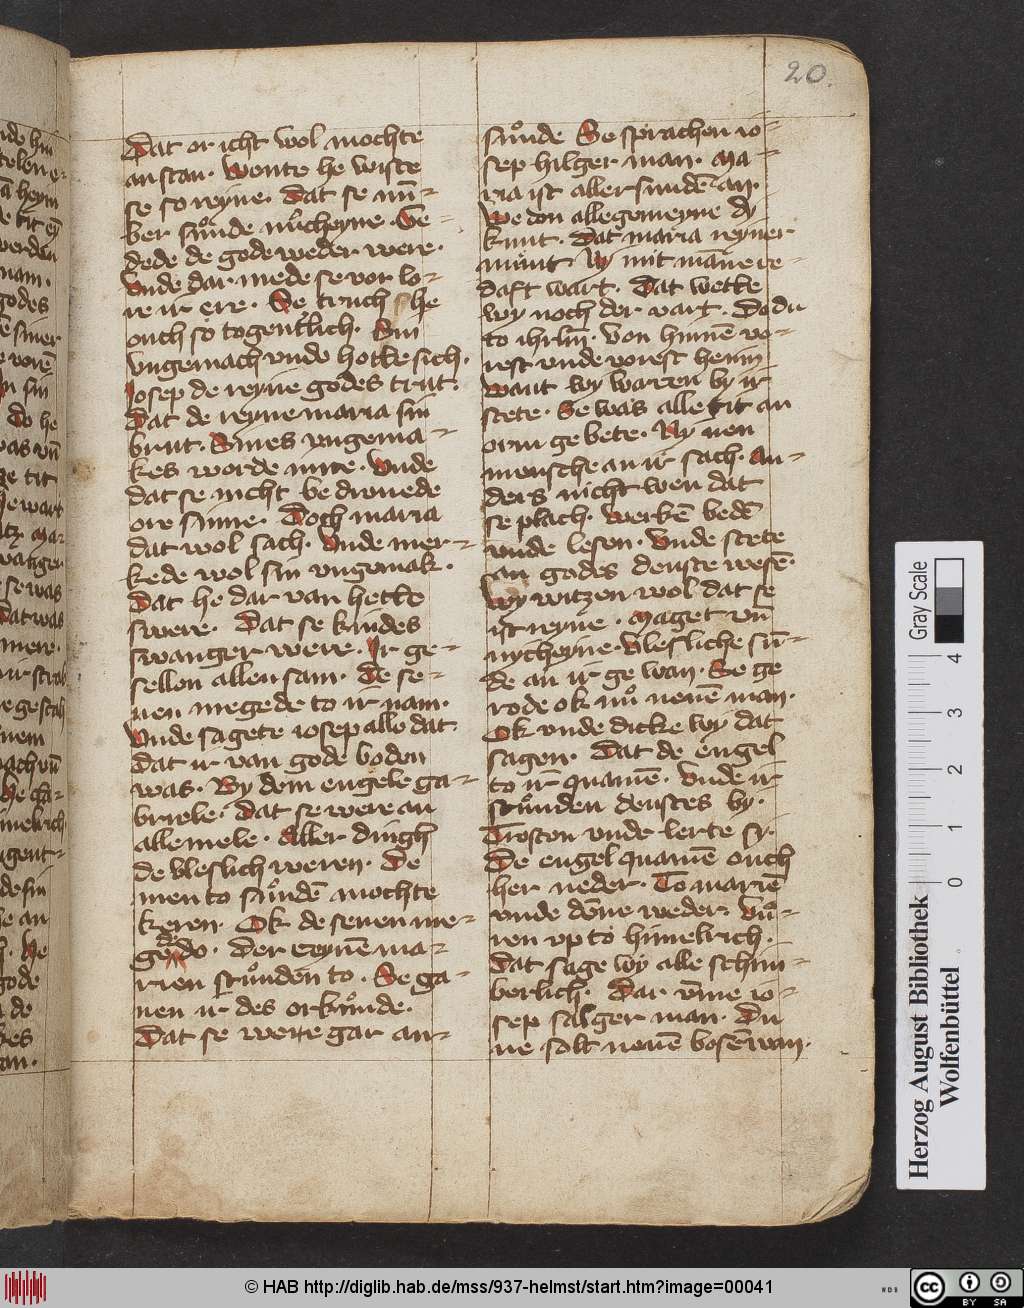 20.
Dat or icht wol mochte
an stan. Wente he wiste
se so reyne. Dat se nu̅-
ber sůnde nůcheyne. Ge-
dede de gode weder were.
Vnde dar mede se vor lo-
re ir ere. Se truch he
ouch so togentlich. Sin
vngemach vnde hotte sich.
Iosep de reyne godes trut.
Dat de reyne maria sin
brut. Sines vngema-
kes worde inne. Vnde
dat se nicht bedrouede
ore sinne. Doch maria
dat wol sach. Vnde mer-
kede wol sin vngemak.
Dat he dar van hette
swere. Dat se kindes
swanger were. Ir ge-
sellen allen sam. De se-
uen megede to ir nam.
Vnde sagete iosep allo dat
Dat ir van gode boden
was. By dem engele ga-
briele. Dat se were an
alle mele. Aller dingh
de vleslich weren. De
men to sůnde̅ mochte
keren. Ok de seuen me-
gede do. Der reyne̅ ma-
rien stůnden to. Se ga-
uen ir des orkůnde.
Dat se were gar an-
sůnde Se sprachen io-
sep hilger man. Ma-
ria ist aller sunde̅ an.
We don alle gemeyne dy
kunt. Dat maria reyner
munt Ny mit ma̅ne re-
daft wart. Dat wette
wy noch der vart. Do du
to ihrlm̅. Von hinne̅ vo-
rest vnde vorest henin
Want wy warren by ir
stete. Se was alle tit an
orm gebete. Ny nen
mensche an ir sach. An-
ders nicht wen dat
se plach. Werke̅ bede̅
vnde lesen. Vnde stete
an godes denste wese̅.
Wy witzen wol dat se
ist reyne. Maget vn̅
nycheyne. Vlesliche su̅-
de an ir gewan. Se ge
rode ok nů neue̅ man.
Ok vnde dicke wy dat
sagen. Dat de engel
to ir quame̅. Vnde ir
stůnden denstes by.
Trosten vnde lerte sy.
De engel quame̅ ouch
her neder. To marie̅
vnde do̅ne weder. Vů-
ren vp to himelrich.
Dat sage wy alle schin-
berlich. Dar v̅me io-
sep salger man. Du
ne solt neue̅ bose̅ wan.
Herzog August Bibliothek
Wolfenbüttel
Gray Scale
0 1 2 3 4
© HAB http://diglib.hab.de/mss/937-helmst/start.htm?image=00041
WDB
cc BY SA